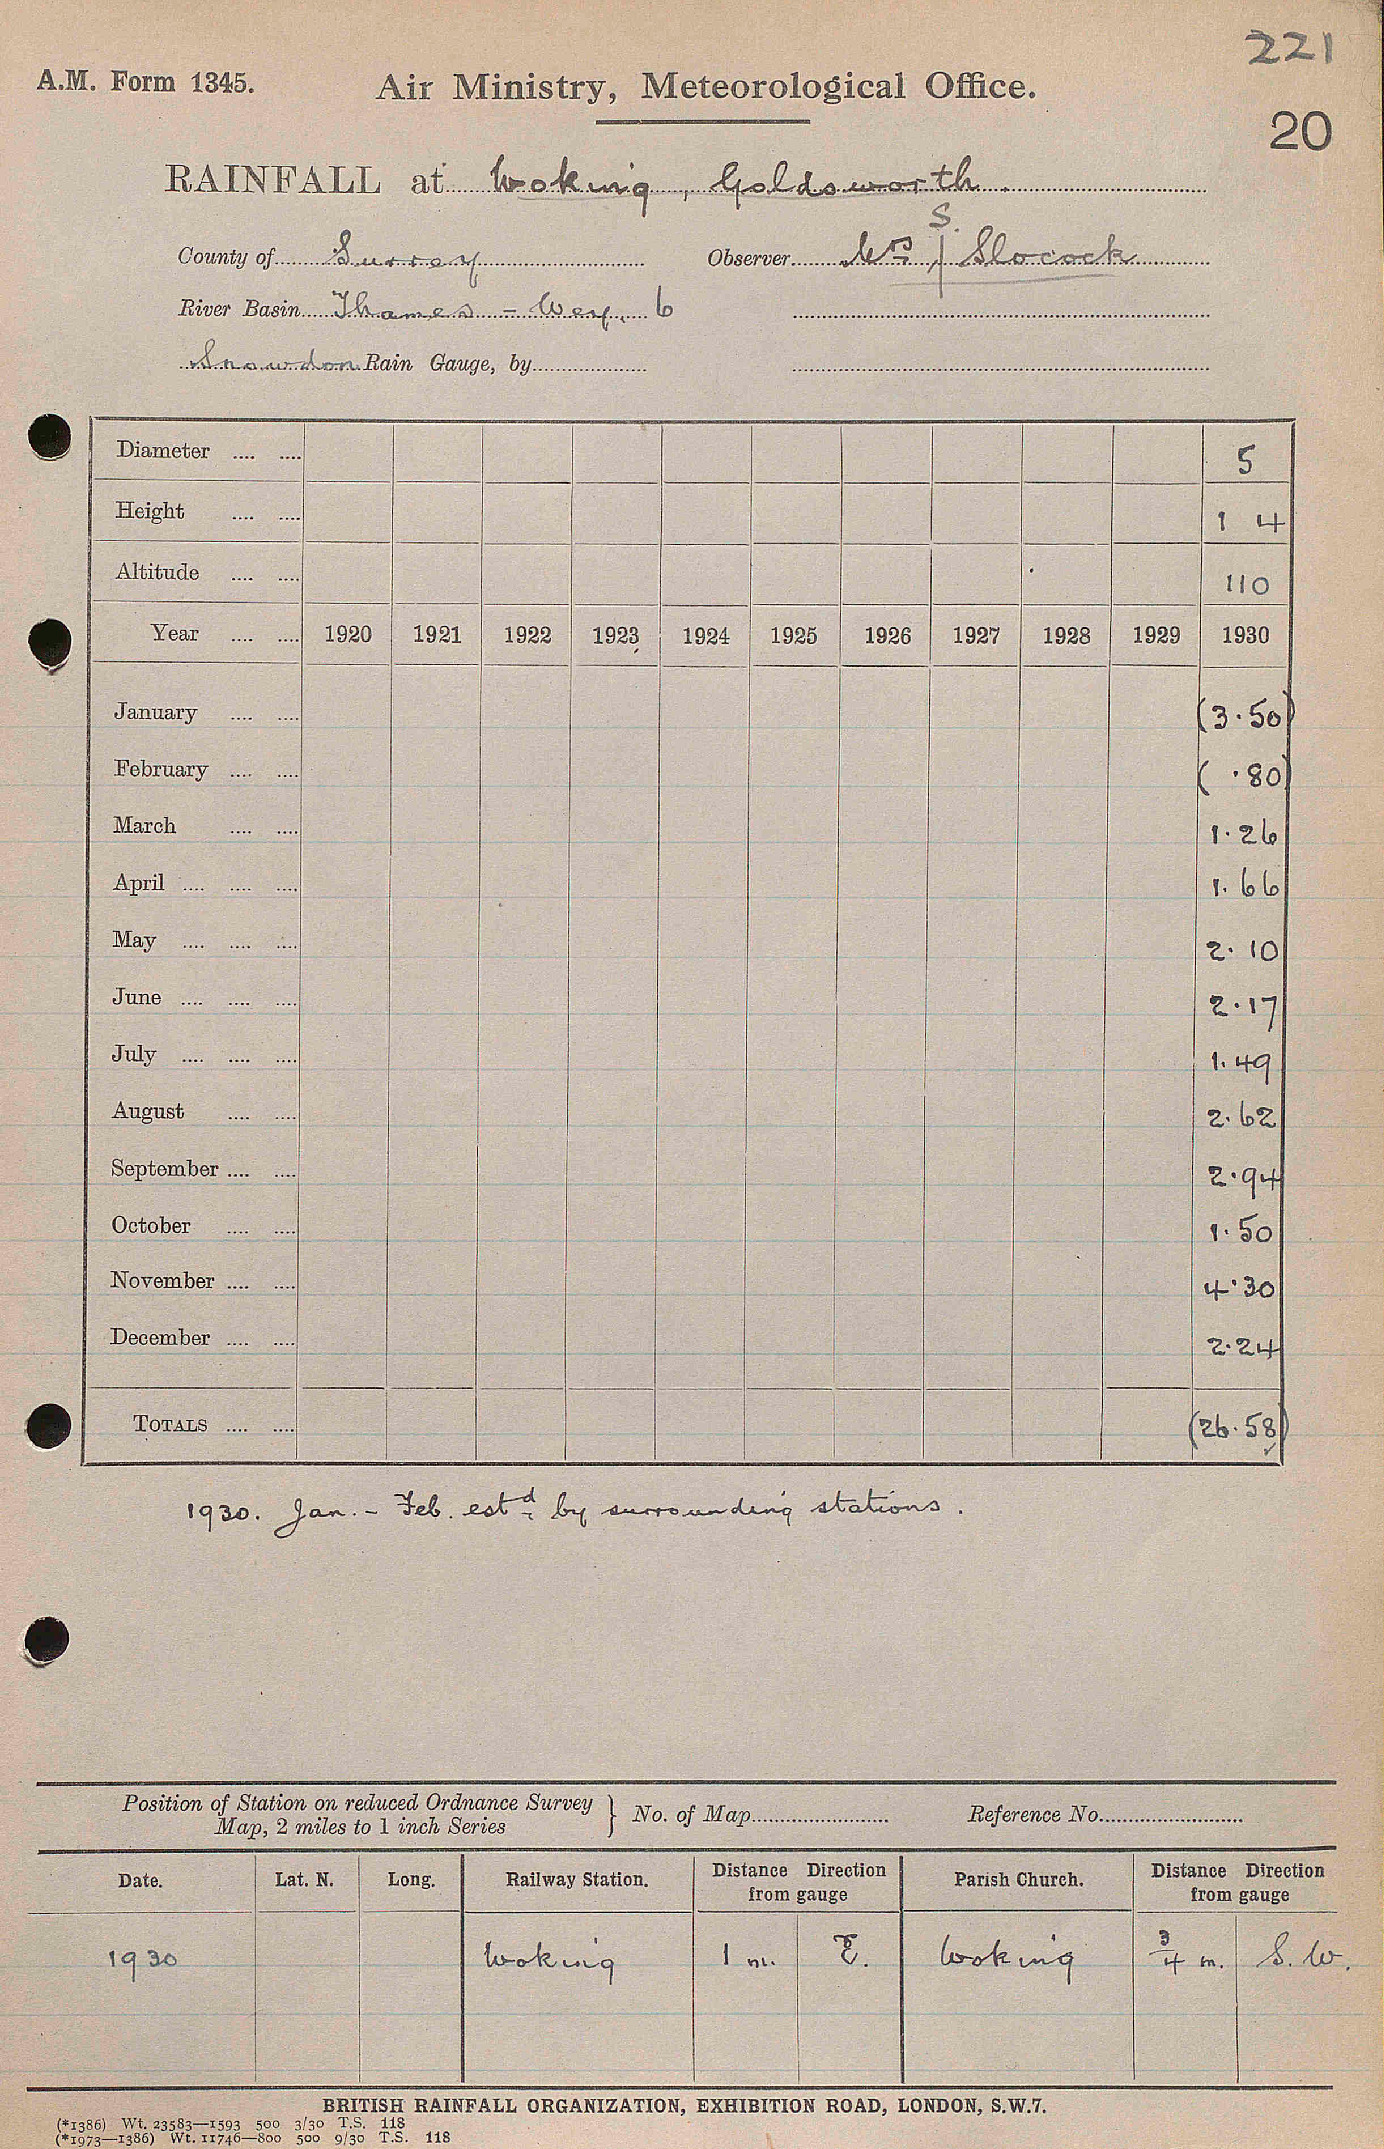 221
A.M. Form 1345. Air Ministry, Meteorological Office.
20
RAINFALL at Woking, Goldsworth.
County of Surrey Observer Mrs S. Slocock
River Basin Thames - Wey, 6
Snowdon Rain Gauge, by
Diameter .... .... 5
Height .... .... 1 4
Altitude .... .... 110
Year .... .... 1920 1921 1922 1923 1924 1925 1926 1927 1928 1929 1930
January .... .... (3.50)
February .... .... ( .80)
March .... .... 1.26
April .... .... .... 1.66
May .... .... .... 2.10
June .... .... .... 2.17
July .... .... .... 1.49
August .... .... 2.62
September .... .... 2.94
October .... .... 1.50
November .... .... 4.30
December .... .... 2.24
TOTALS .... .... (26.58)
1930. Jan. - Feb. estd by surrounding stations.
Position of Station on reduced Ordnance Survey
Map, 2 miles to 1 inch Series } No. of Map Reference No.
Date. Lat. N. Long. Railway Station. Distance Direction from gauge Parish Church. Distance Direction from gauge
1930 Woking 1 m. E. Woking 3/4 m. S.W.
BRITISH RAINFALL ORGANIZATION, EXHIBITION ROAD, LONDON, S.W.7.
(*1386) Wt. 23583—1593 500 3/30 T.S. 118
(*1973—1386) Wt. 11746—800 500 9/30 T.S. 118